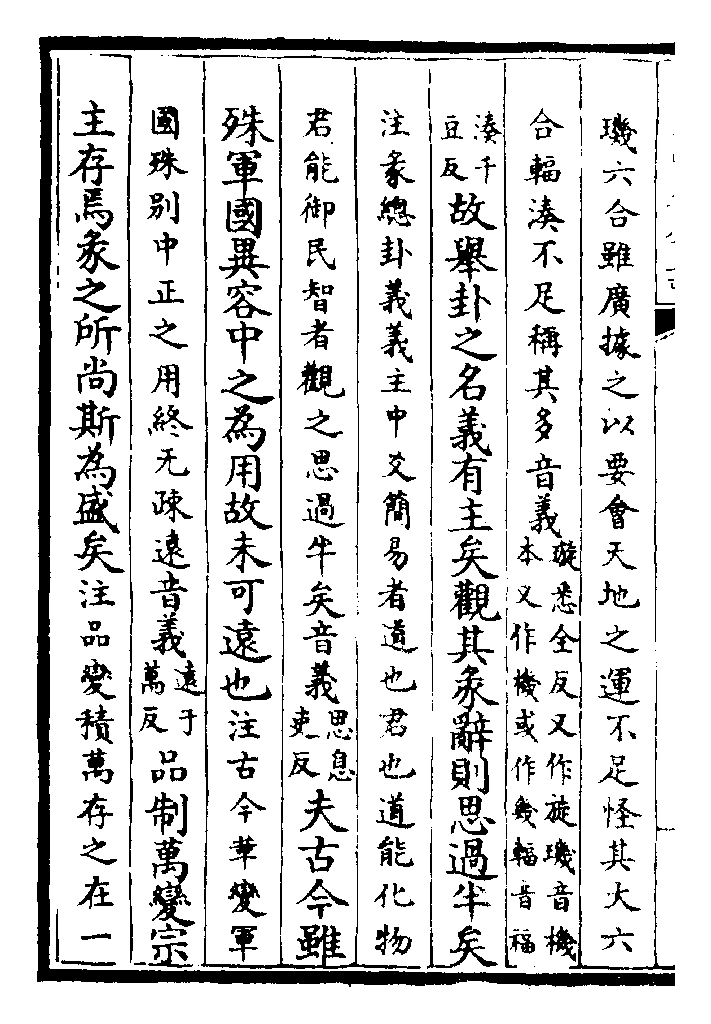 璣六合雖廣據之以要會天地之運不足怪其大六
合輻湊不足稱其多音義璇悉全反又作旋璣音機本又作機或作幾輻音福
湊千豆反故舉卦之名義有主矣觀其彖辭則思過半矣
注彖總卦義義主中爻簡易者道也君也道能化物
君能御民智者觀之思過半矣音義思息吏反夫古今雖
殊軍國異容中之為用故未可遠也注古今革變軍
國殊別中正之用終无疎遠音義遠于萬反品制萬變宗
主存焉彖之所尚斯為盛矣注品變積萬存之在一